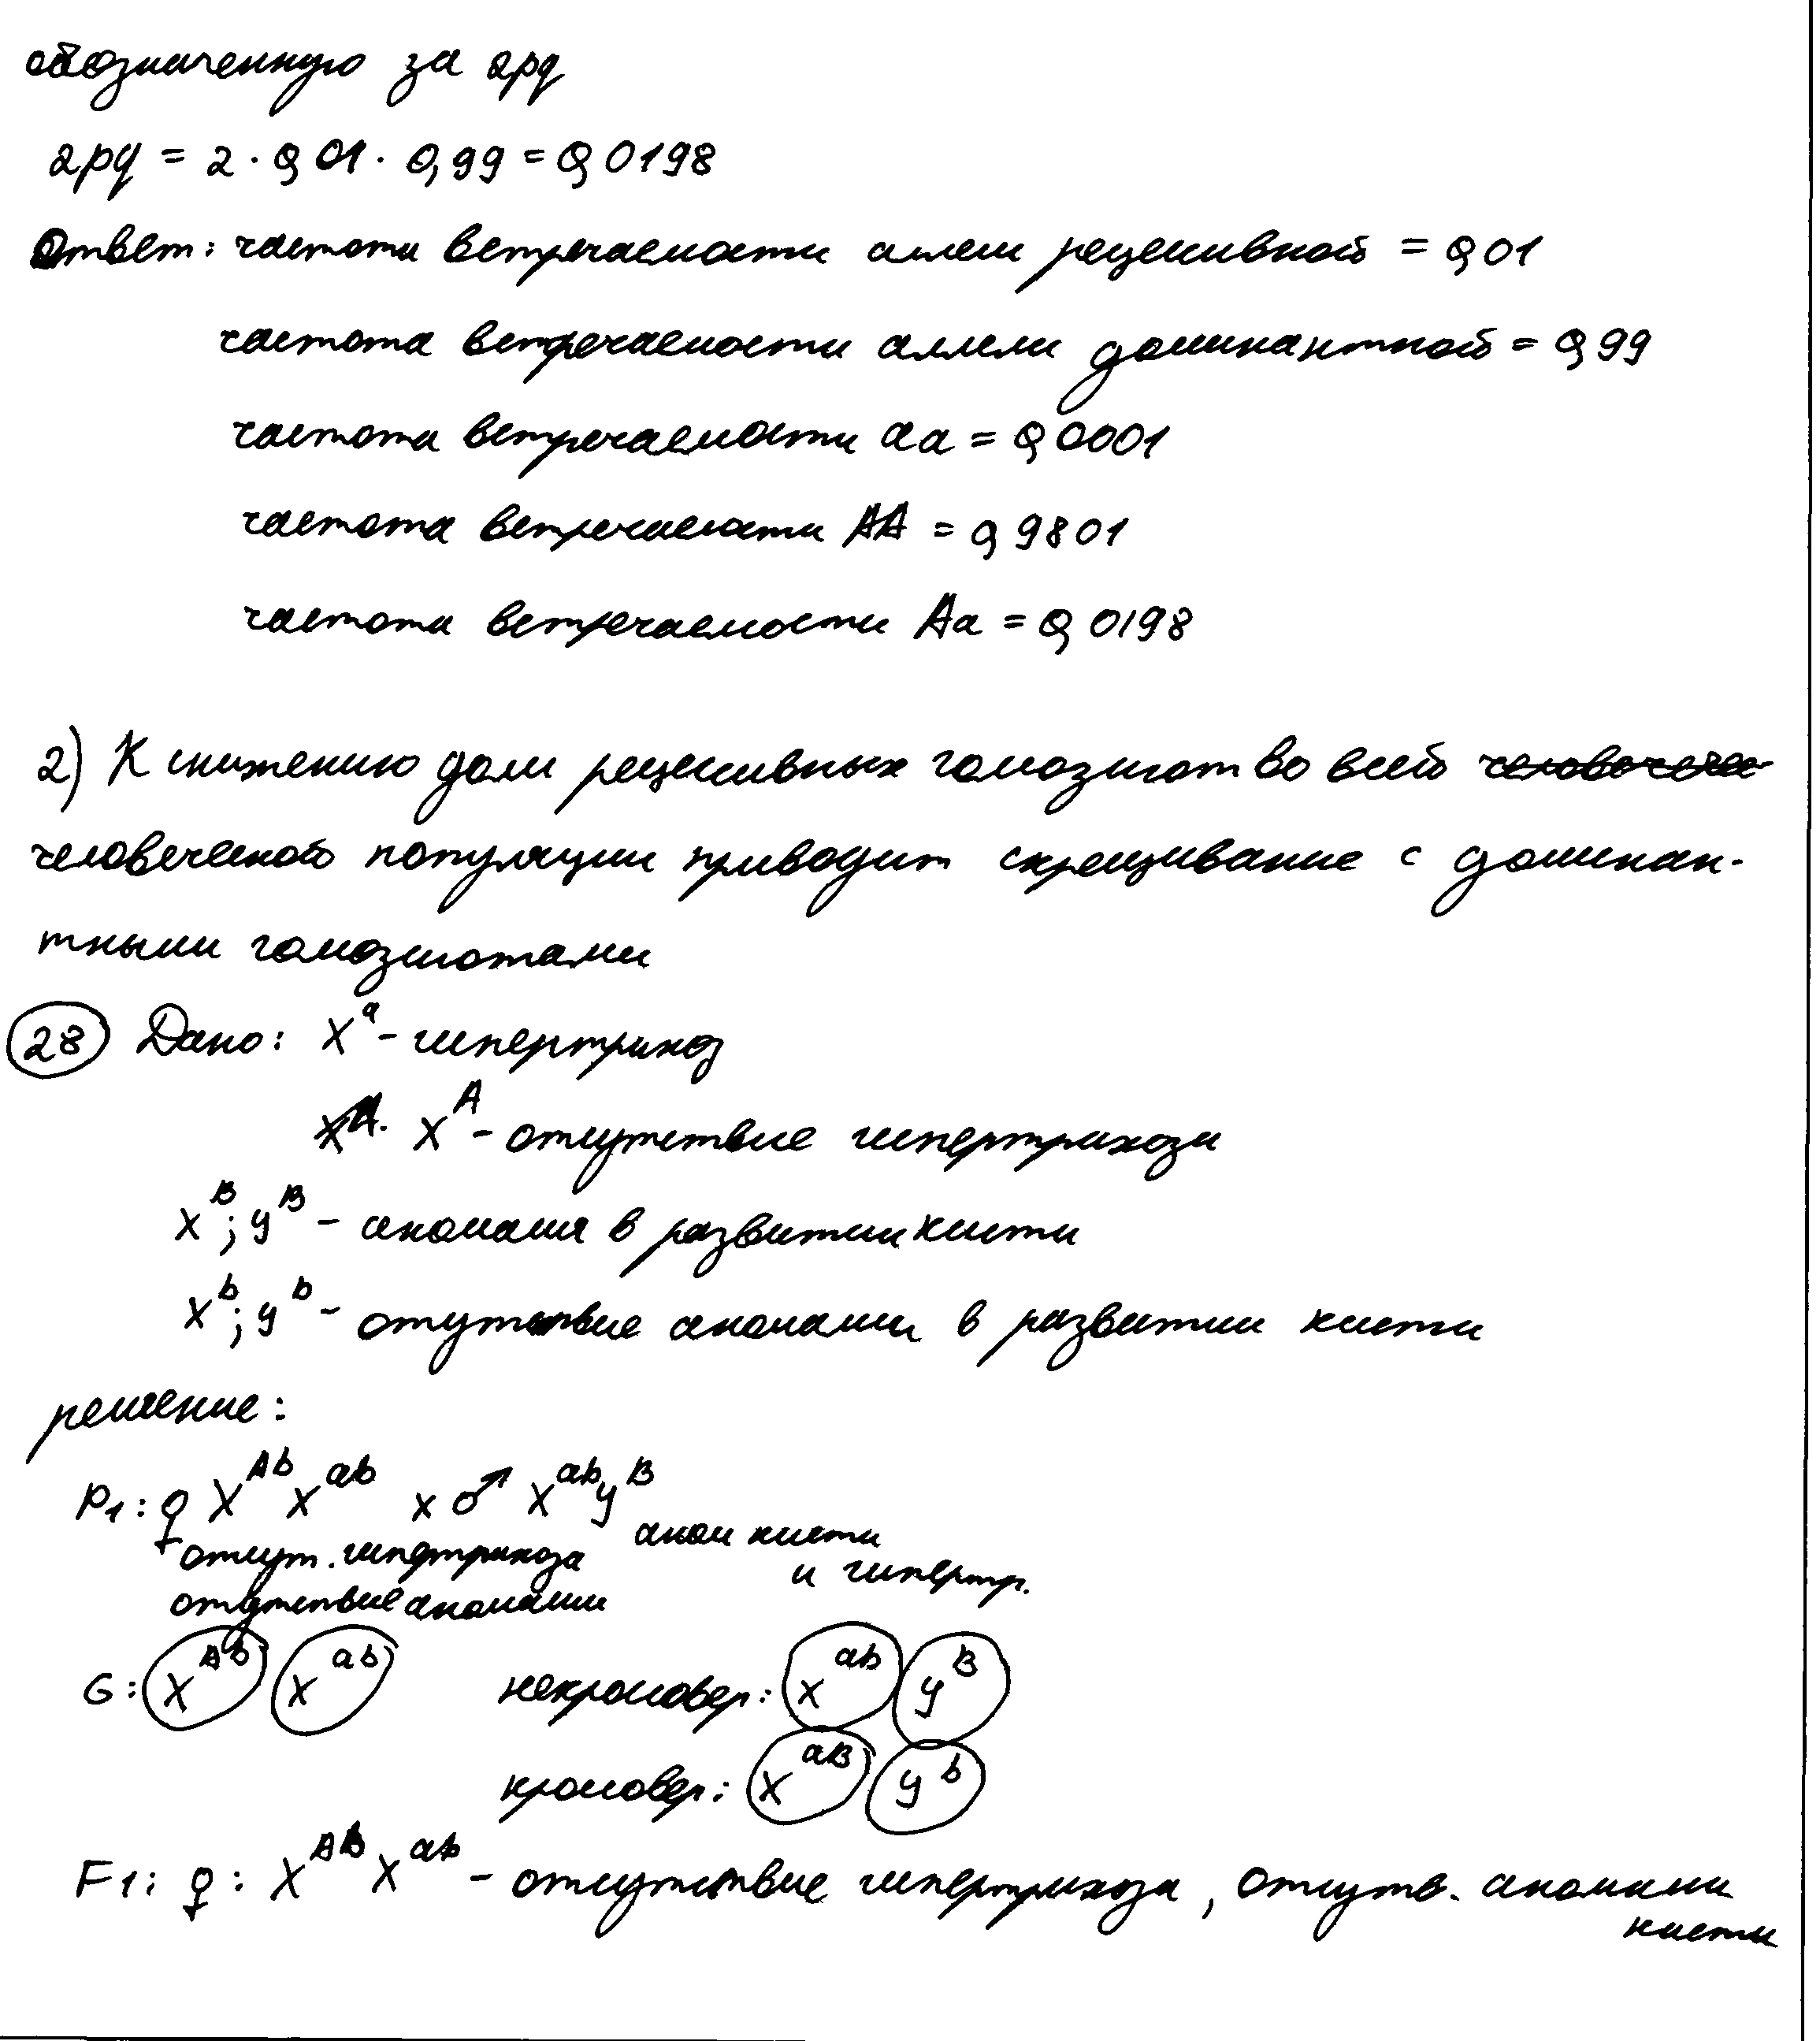 обозначенную за 2pq
2pq = 2 · 0,01 · 0,99 = 0,0198
Ответ: частота встречаемости аллели рецессивной = 0,01
частота встречаемости аллели доминантной = 0,99
частота встречаемости aa = 0,0001
частота встречаемости AA = 0,9801
частота встречаемости Aa = 0,0198
2) К снижению доли рецессивных гомозигот во всей
человеческой популяции приводит скрещивание с доминан-
тными гомозиготами
28 Дано: X^a - гипертрихоз
X^A - отсутствие гипертрихоза
X^B; y^B - аномалия в развитии кисти
X^b; y^b - отсутствие аномалии в развитии кисти
решение:
P1: ♀ X^Ab X^ab x ♂ X^ab y^B
аном кисти
отсут. гипертрихоза и гипертр.
отсутствие аномалии
G: X^Ab X^ab некроссовер: X^ab y^B
кроссовер: X^aB y^b
F1: ♀: X^Ab X^ab - отсутствие гипертрихоза, отсутв. аномалии
кисти